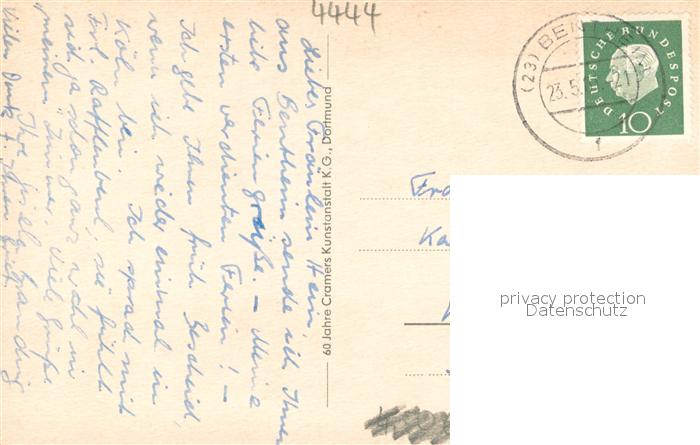 4444
Liebes Fräulein Hein,
aus Bentheim sende ich Ihnen
liebe Feriengrüße. – Meine
ersten verdienten Ferien! –
Ich gebe Ihnen früh Bescheid,
wenn ich wieder einmal in
Köln bin. Ich sprach mit
Frl. , sie fühlt
sich ja schon ganz wohl in
meinem Zimmer. Viele Grüße
Ihre
Vielen Dank f. Ihren
60 Jahre Cramers Kunstanstalt K.G., Dortmund
(23) BENT
23.5. 21
DEUTSCHE BUNDESPOST
10
privacy protection
Datenschutz